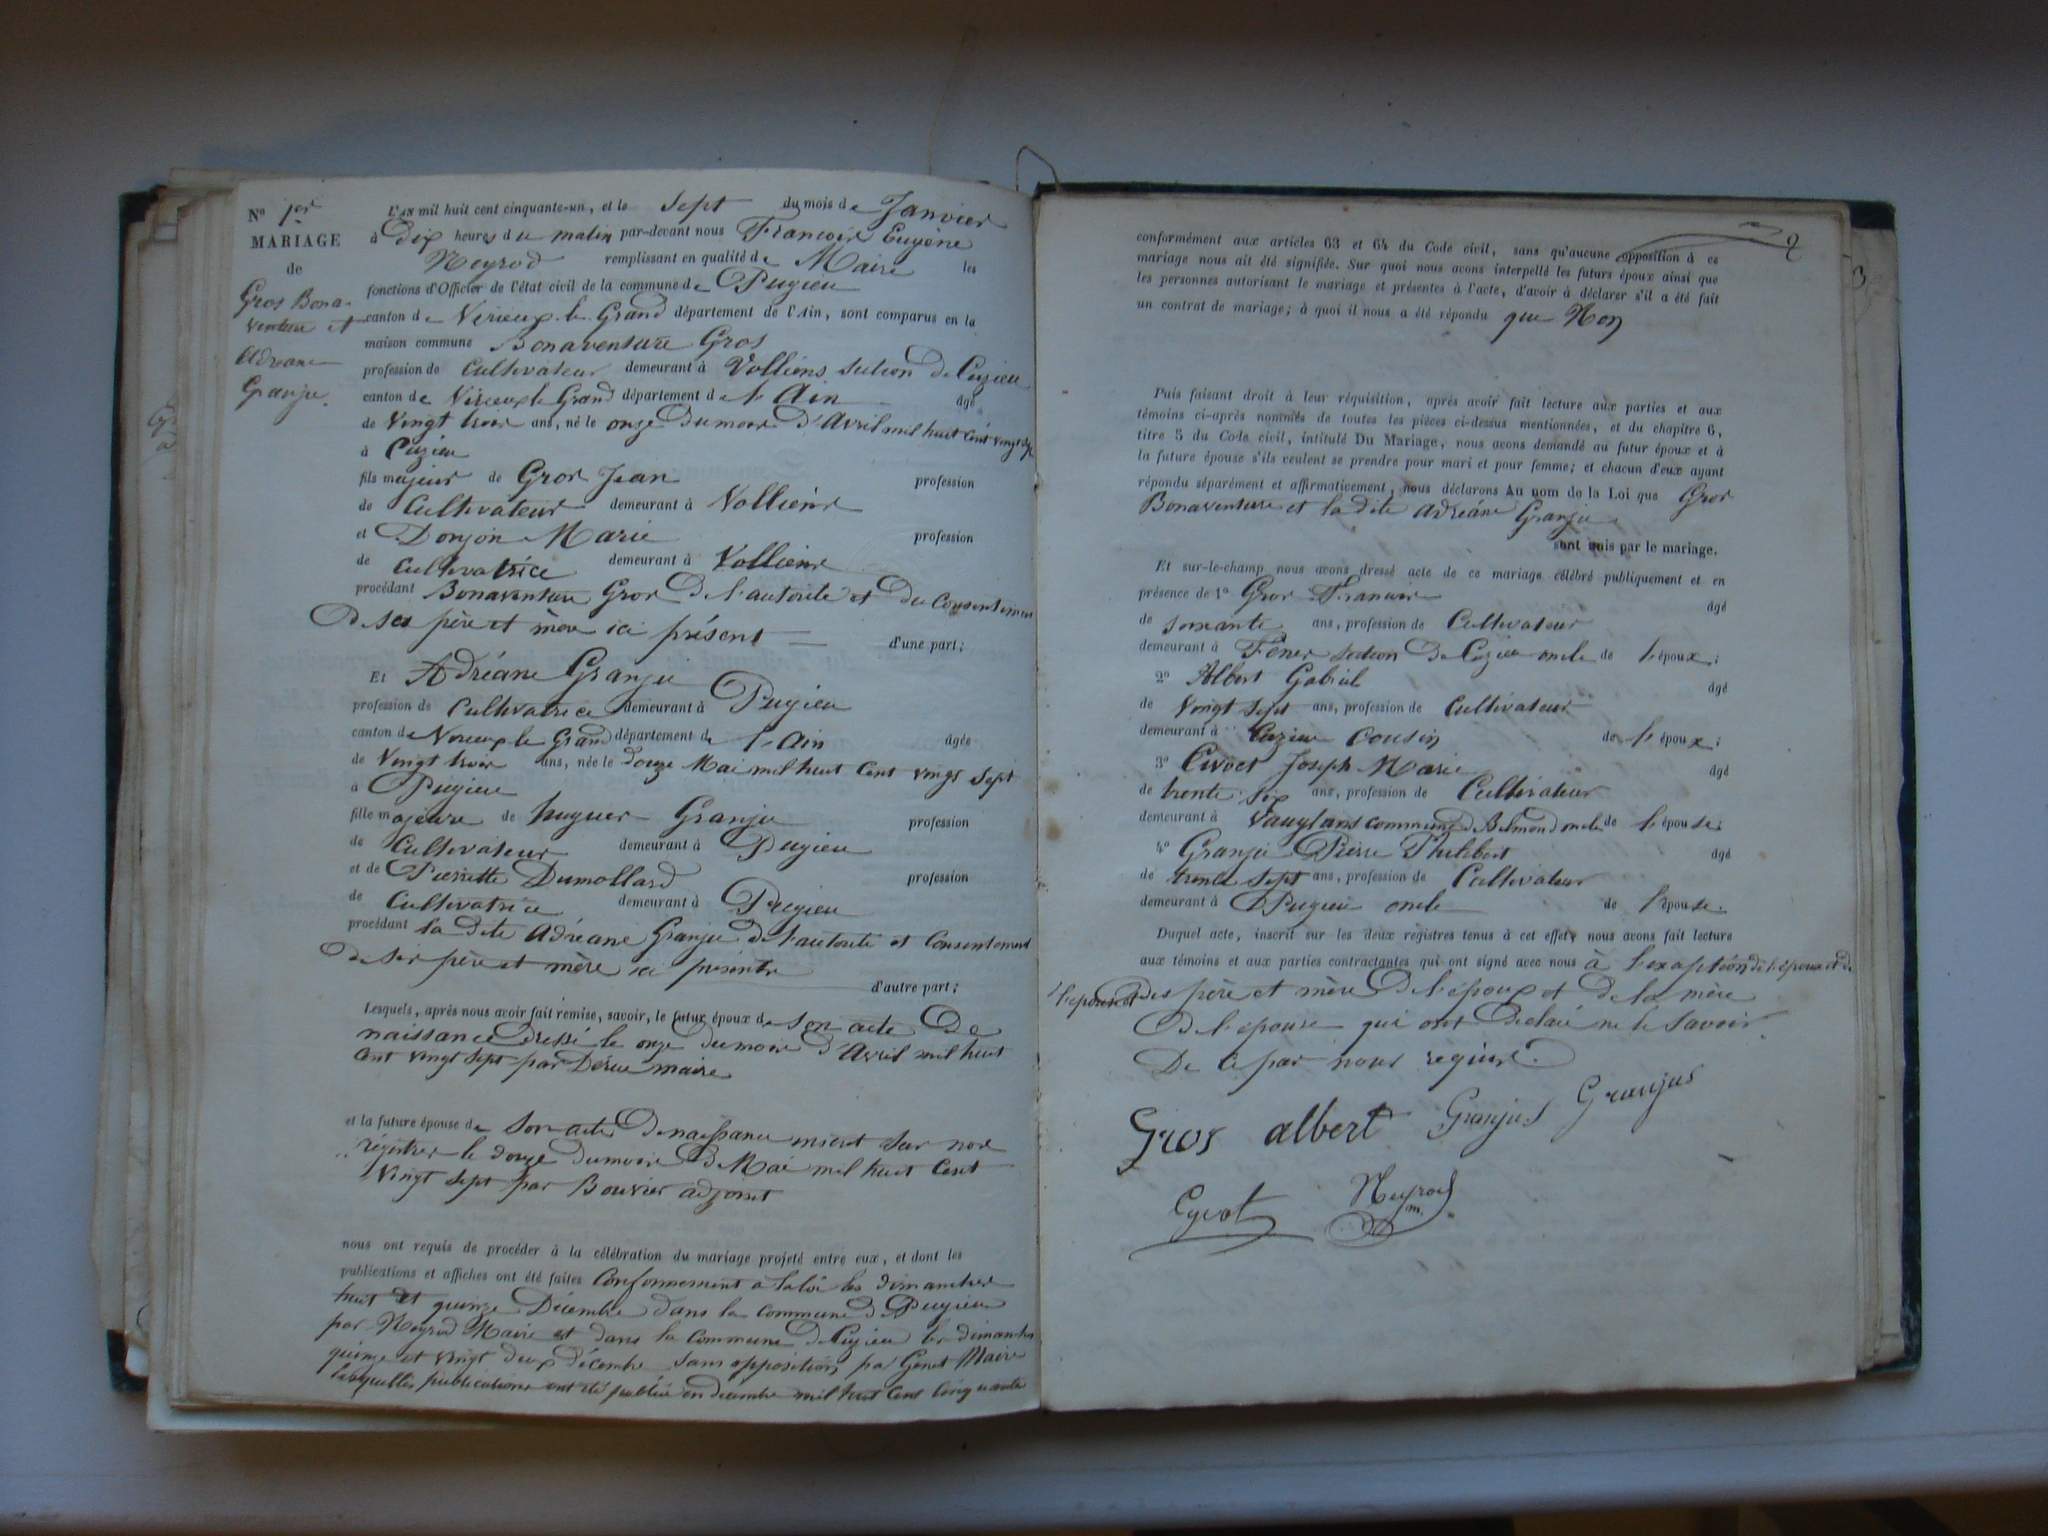 N° 1er
MARIAGE
de
Gros Bona-
venture et
Adréane
Granju.
L'an mil huit cent cinquante-un, et le sept du mois de Janvier
à Dix heures du matin par-devant nous François Eugène
Neyrod remplissant en qualité de Maire les
fonctions d'Officier de l'état civil de la commune de Pugieu
canton de Virieux le Grand département de l'Ain, sont comparus en la
maison commune Bonaventure Gros
profession de Cultivateur demeurant à Volliens section de Cuzieu
canton de Virieux le Grand département de l'Ain âgé
de Vingt trois ans, né le onze du mois d'Avril mil huit cent vingt sept
à Cuzieu
fils majeur de Gros Jean profession
de Cultivateur demeurant à Volliens
et Donjon Marie profession
de Cultivatrice demeurant à Volliens
procédant Bonaventure Gros de l'autorité et du consentement
De ses père et mère ici présent d'une part ;
Et Adréane Granju
profession de Cultivatrice demeurant à Pugieu
canton de Virieux le Grand département de l'Ain âgée
de Vingt trois ans, née le douze Mai mil huit Cent vingt sept
à Pugieu
fille majeure de hugues Granju profession
de Cultivateur demeurant à Pugieu
et de Pierrette Dumollard profession
de Cultivatrice demeurant à Pugieu
procédant la dite Adréane Granju de l'autorité et Consentement
De ses père et mère ici présents
d'autre part ;
Lesquels, après nous avoir fait remise, savoir, le futur époux de son acte De
naissance dressé le onze du mois d'Avril mil huit
Cent vingt sept par maire
et la future épouse de son acte De naissance inscrit sur nos
régistres le douze du mois De Mai mil huit Cent
Vingt sept par Bouvier adjoint
nous ont requis de procéder à la célébration du mariage projeté entre eux, et dont les
publications et affiches ont été faites Conformement à la loi les dimanches
huit et quinze Décembre dans la commune de Pugieu
par Neyrod Maire et dans la Commune de Cuzieu les dimanches
quinze et vingt deux décembre sans opposition par Genet Maire
lesquelles publications ont été publié en décembre mil huit Cent Cinquante
2
conformément aux articles 63 et 64 du Code civil, sans qu'aucune opposition à ce
mariage nous ait été signifiée. Sur quoi nous avons interpellé les futurs époux ainsi que
les personnes autorisant le mariage et présentes à l'acte, d'avoir à déclarer s'il a été fait
un contrat de mariage ; à quoi il nous a été répondu que Non
Puis faisant droit à leur réquisition, après avoir fait lecture aux parties et aux
témoins ci-après nommés de toutes les pièces ci-dessus mentionnées, et du chapitre 6,
titre 5 du Code civil, intitulé Du Mariage, nous avons demandé au futur époux et à
la future épouse s'ils veulent se prendre pour mari et pour femme ; et chacun d'eux ayant
répondu séparément et affirmativement, nous déclarons Au nom de la Loi que Gros
Bonaventure et la dite Adréane Granju
sont unis par le mariage.
Et sur-le-champ nous avons dressé acte de ce mariage célébré publiquement et en
présence de 1° Gros François âgé
de soixante ans, profession de Cultivateur
demeurant à section De Cuzieu oncle de l'époux ;
2° Albert Gabriel âgé
de Vingt sept ans, profession de Cultivateur
demeurant à Cuzieu Cousin de l'époux ;
3° Civoct Joseph Marie âgé
de trente six ans, profession de Cultivateur
demeurant à commune de Belmond oncle de l'épouse ;
4° Granju Pierre Philibert âgé
de trente sept ans, profession de Cultivateur
demeurant à Pugieu oncle de l'épouse.
Duquel acte, inscrit sur les deux registres tenus à cet effet, nous avons fait lecture
aux témoins et aux parties contractantes qui ont signé avec nous à l'exception de l'époux et de
l'épouse et des père et mère De l'époux et De la mère
De l'épouse qui ont Déclaré ne le Savoir.
De ce par nous requis.
Gros albert Granjus Granjus
Cyvot Neyrod
m.
3